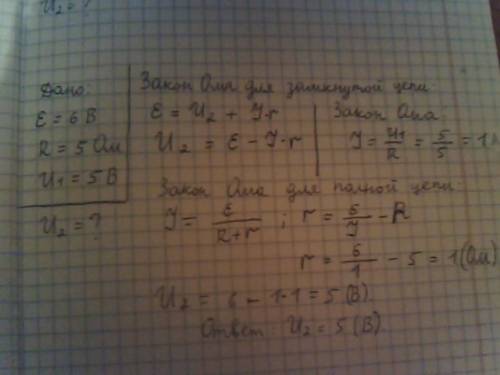 U₂ = ?
Дано:
ε = 6 В
R = 5 Ом
U₁ = 5 В
U₂ = ?
Закон Ома для замкнутой цепи:
ε = U₂ + J·r
U₂ = ε − J·r
Закон Ома
J = U₁/R = 5/5 = 1
Закон Ома для полной цепи:
J = ε/(R+r) ; r = 6/J − R
r = 6/1 − 5 = 1 (Ом)
U₂ = 6 − 1·1 = 5 (В).
Ответ: U₂ = 5 (В)